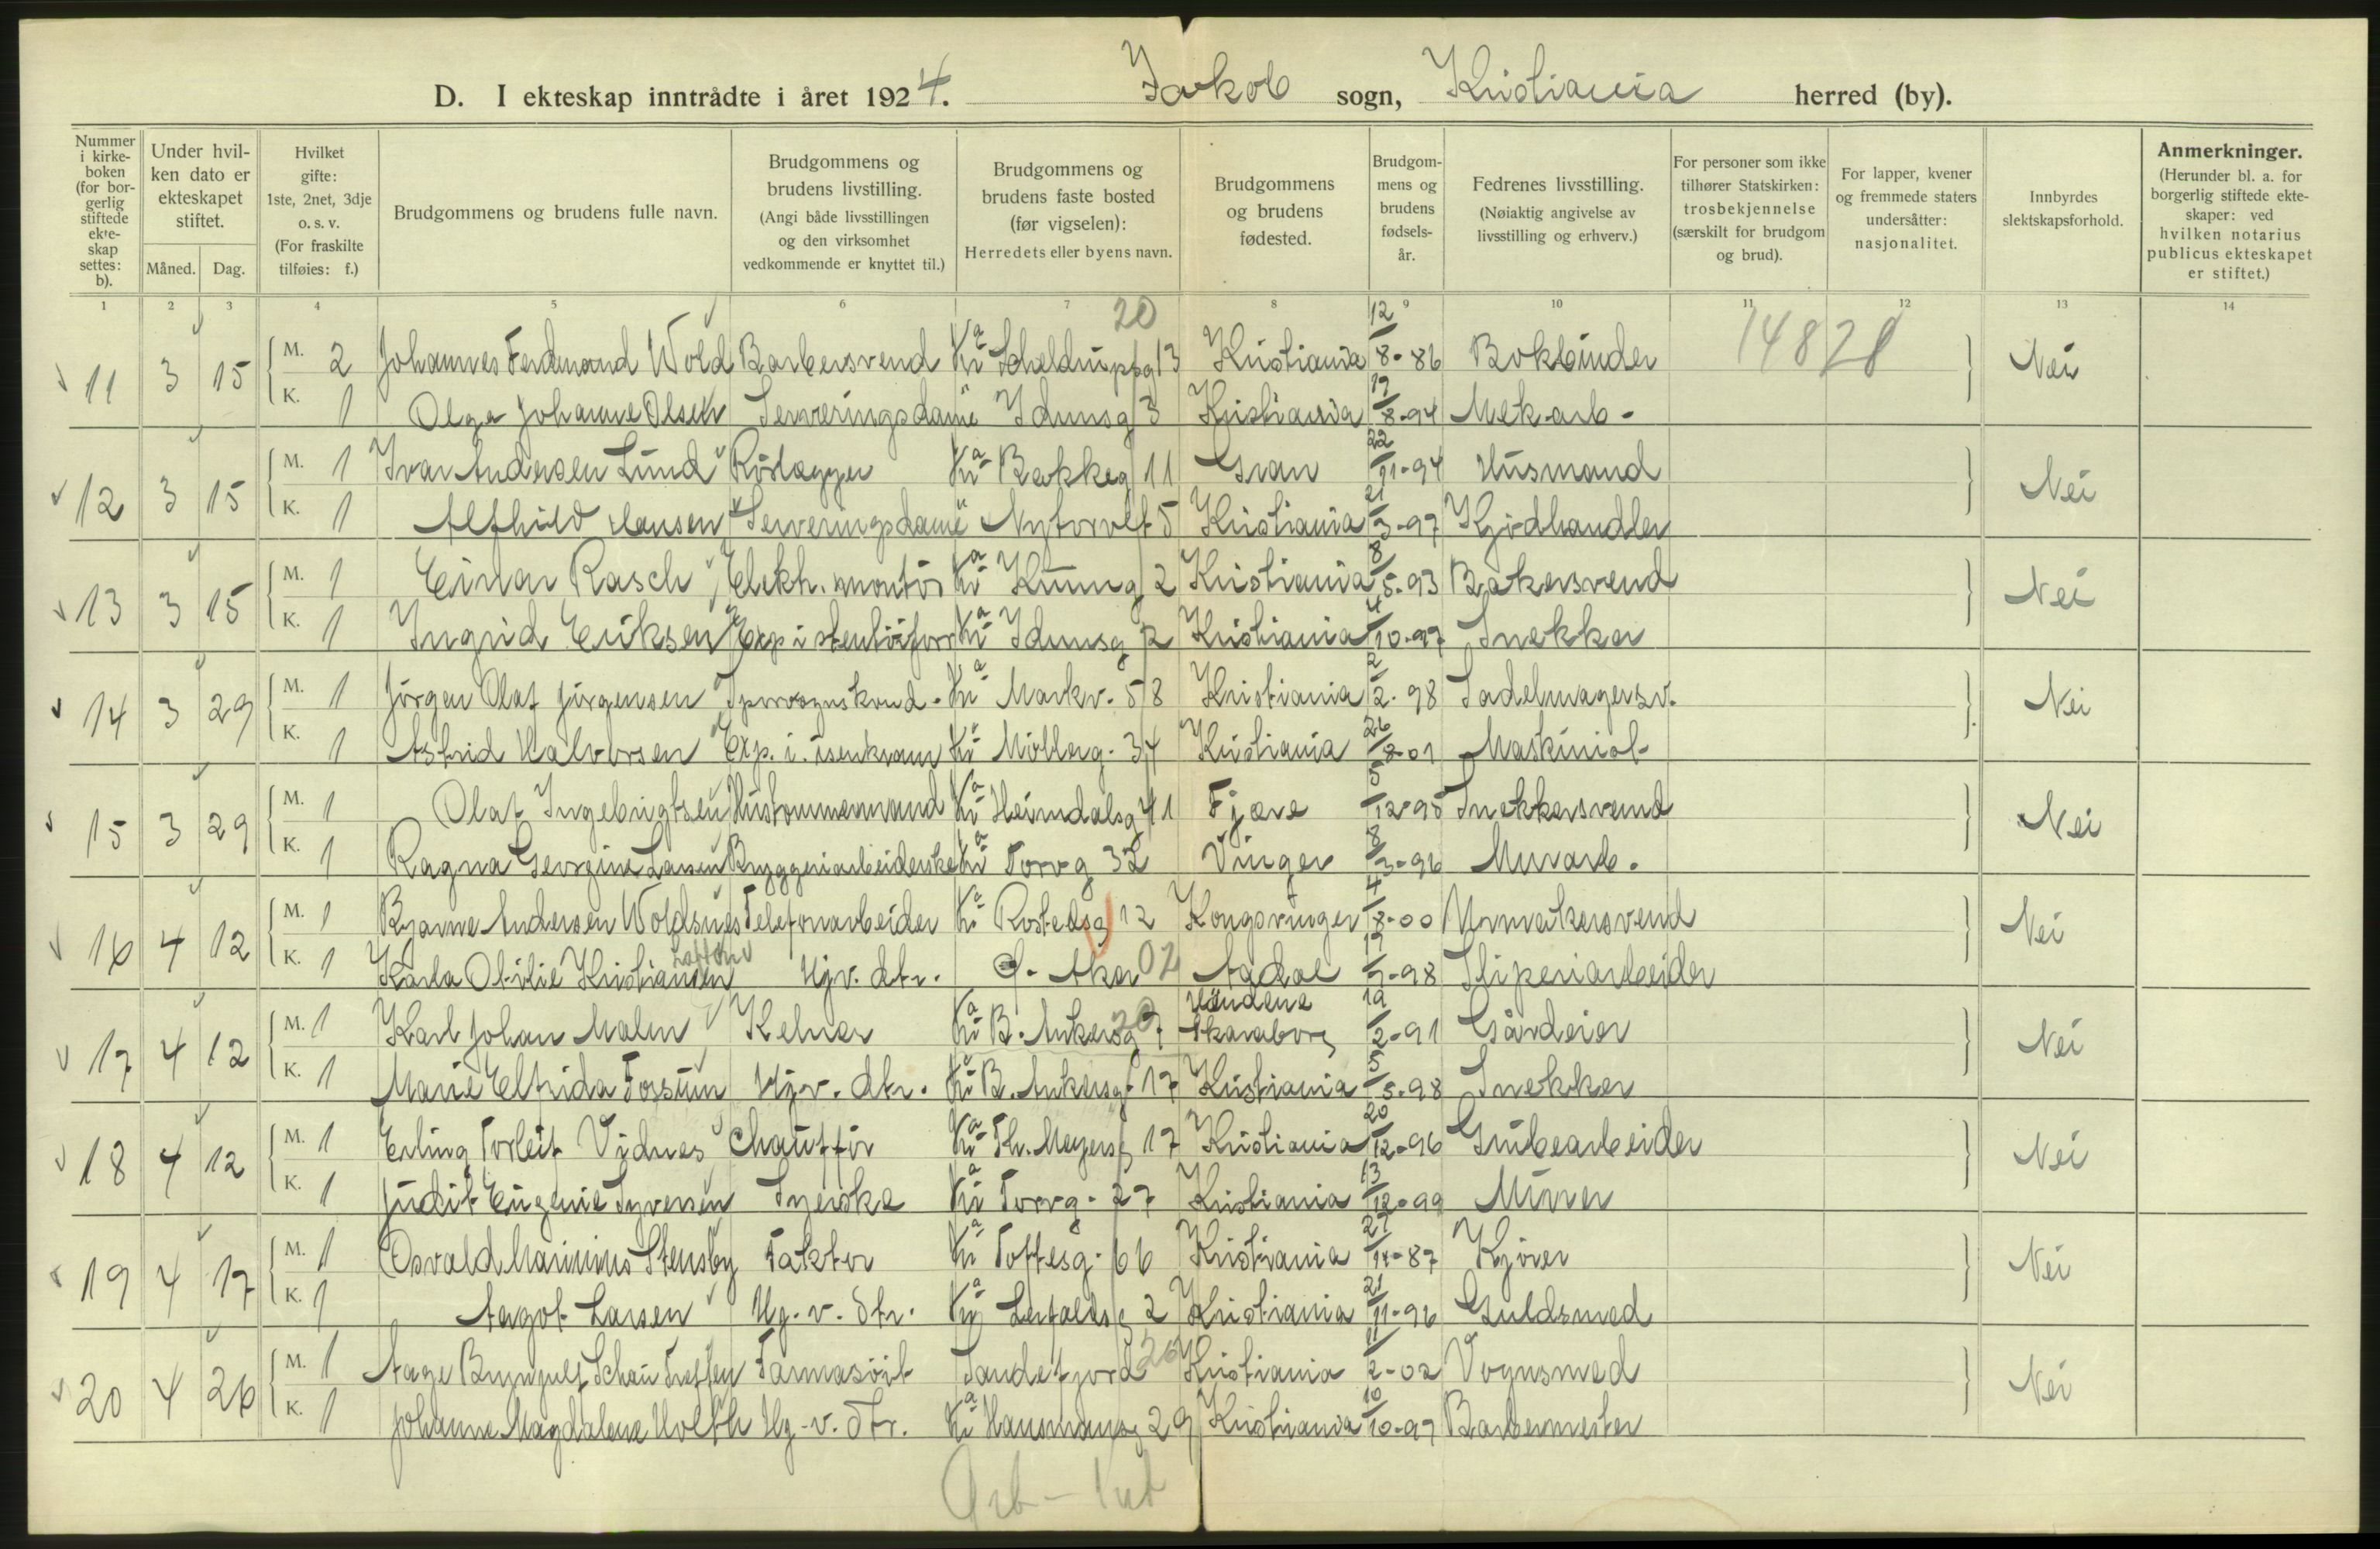 D. I ekteskap inntrådte i året 1924. Jakob sogn, Kristiania herred (by).
Nummer i kirkeboken (for borgerlig stiftede ekteskap settes: b).
Under hvilken dato er ekteskapet stiftet.
Måned. Dag.
Hvilket gifte: 1ste, 2net, 3dje o. s. v. (For fraskilte tilføies: f.)
Brudgommens og brudens fulle navn.
Brudgommens og brudens livstilling. (Angi både livsstillingen og den virksomhet vedkommende er knyttet til.)
Brudgommens og brudens faste bosted (før vigselen): Herredets eller byens navn.
Brudgommens og brudens fødested.
Brudgommens og brudens fødselsår.
Fedrenes livsstilling. (Nøiaktig angivelse av livsstilling og erhverv.)
For personer som ikke tilhører Statskirken: trosbekjennelse (særskilt for brudgom og brud).
For lapper, kvener og fremmede staters undersåtter: nasjonalitet.
Innbyrdes slektskapsforhold.
Anmerkninger. (Herunder bl. a. for borgerlig stiftede ekteskaper: ved hvilken notarius publicus ekteskapet er stiftet.)
1 2 3 4 5 6 7 8 9 10 11 12 13 14
20
11 3 15 M. 2 Johannes Ferdinand Wold Barbersvend Kra Schieldrupsg 13 Kristiania 12/8-86 Bokbinder 14828 Nei
K. 1 Olga Johanne Olsen Serveringsdame " Idunsg 3 Kristiania 19/8-94 Mek.arb.
12 3 15 M. 1 Ivar Andersen Lund Rörlægger Kra Bakkeg 11 Gran 22/11-94 Husmand Nei
K. 1 Alfhild Hansen Serveringsdame " Nytorvet 5 Kristiania 21/3-97 Kjödhandler
13 3 15 M. 1 Einar Rasch Elektr. montör Kra Kummg 2 Kristiania 8/5-93 Bakersvend Nei
K. 1 Ingrid Eriksen Exp i Kra Idunsg 2 Kristiania 4/10-97 Snekker
14 3 29 M. 1 Jörgen Olaf Jörgensen Sporvognskond. Kra Markv. 58 Kristiania 2/2-98 Sadelmagersv. Nei
K. 1 Astrid Halvorsen Exp. i. isenkram Kra Möllerg. 34 Kristiania 26/8-01 Maskinist
15 3 29 M. 1 Olaf Ingebrigtsen Hustömmermand Kra Heimdalsg 41 Fjære 5/12-95 Snekkersvend Nei
K. 1 Ragna Georgine Larsen Bryggeriarbeiderske Kra Torvg 32 Vinger 8/3-96 Murarb.
16 4 12 M. 1 Bjarne Andersen Woldsnes Telefonarbeider Kra Rostedsg 12 Kongsvinger 4/8-00 Urmakersvend Nei
K. 1 Karla Otilie Kristiansen Hjv. dtr. Ö. Aker 02 Aadal -98 Sliperiarbeider
17 4 12 M. 1 Karl Johan Malm Kelner Kra B. Ankersg 20 Skaraborg 19/2-91 Gårdeier Nei
K. 1 Marie Elfrida Fossum Hjv. dtr. Kra B. Ankersg. 17 Kristiania 5/5-98 Snekker
18 4 12 M. 1 Erling Torleif Vidnes Chaufför Kra Th. Meyersg 17 Kristiania 20/12-96 Grubearbeider Nei
K. 1 Judit Eugenie Syversen Syerske Kra Torvg. 27 Kristiania 13/12-99 Murer
19 4 17 M. 1 Osvald Marinius Stensby Faktor Kra Toftesg. 66 Kristiania -87 Kjörer Nei
K. 1 Aagot Larsen Hj. v. dtr. Kra 2 Kristiania 21/11-96 Guldsmed
20 4 26 M. 1 Aage Brynjulf Schau Farmasöit Sandefjord 20 Kristiania 11/2-02 Vognsmed Nei
K. 1 Johanne Magdalene Holth Hj-v. dtr. Kra Hausmannsg 29 Kristiania 10/10-97 Barbermester